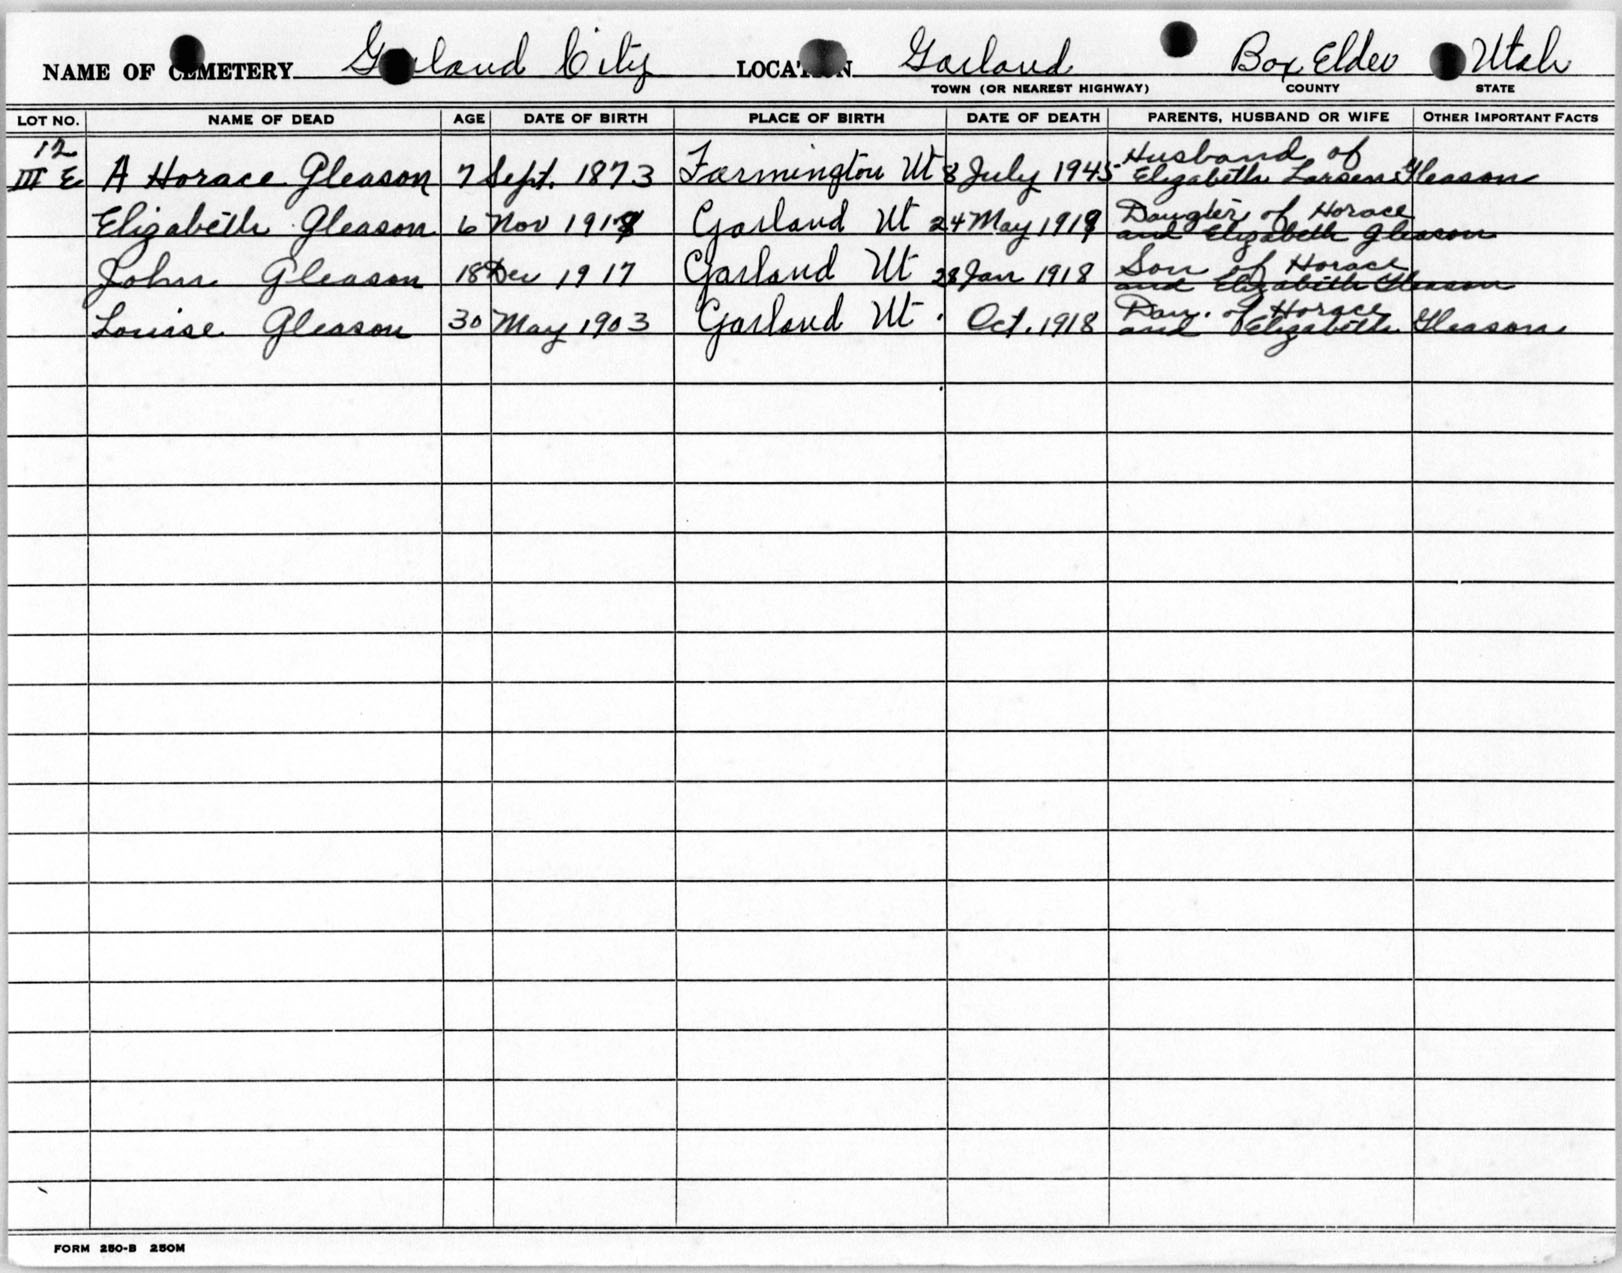 NAME OF CEMETERY Garland City LOCATION Garland Box Elder Utah
TOWN (OR NEAREST HIGHWAY) COUNTY STATE
LOT NO. NAME OF DEAD AGE DATE OF BIRTH PLACE OF BIRTH DATE OF DEATH PARENTS, HUSBAND OR WIFE OTHER IMPORTANT FACTS
12 Husband of
III E A Horace Gleason 7 Sept. 1873 Farmington Ut 8 July 1945 Elizabeth Larsen Gleason
Daugter of Horace
Elizabeth Gleason 6 Nov Garland Ut 24 May 1919 and Elizabeth Gleason
Son of Horace
John Gleason 18 Dec 1917 Garland Ut 28 Jan 1918 and Elizabeth Gleason
Dau. of Horace
Louise Gleason 30 May 1903 Garland Ut. Oct. 1918 and Elizabeth Gleason
FORM 250-B 250M